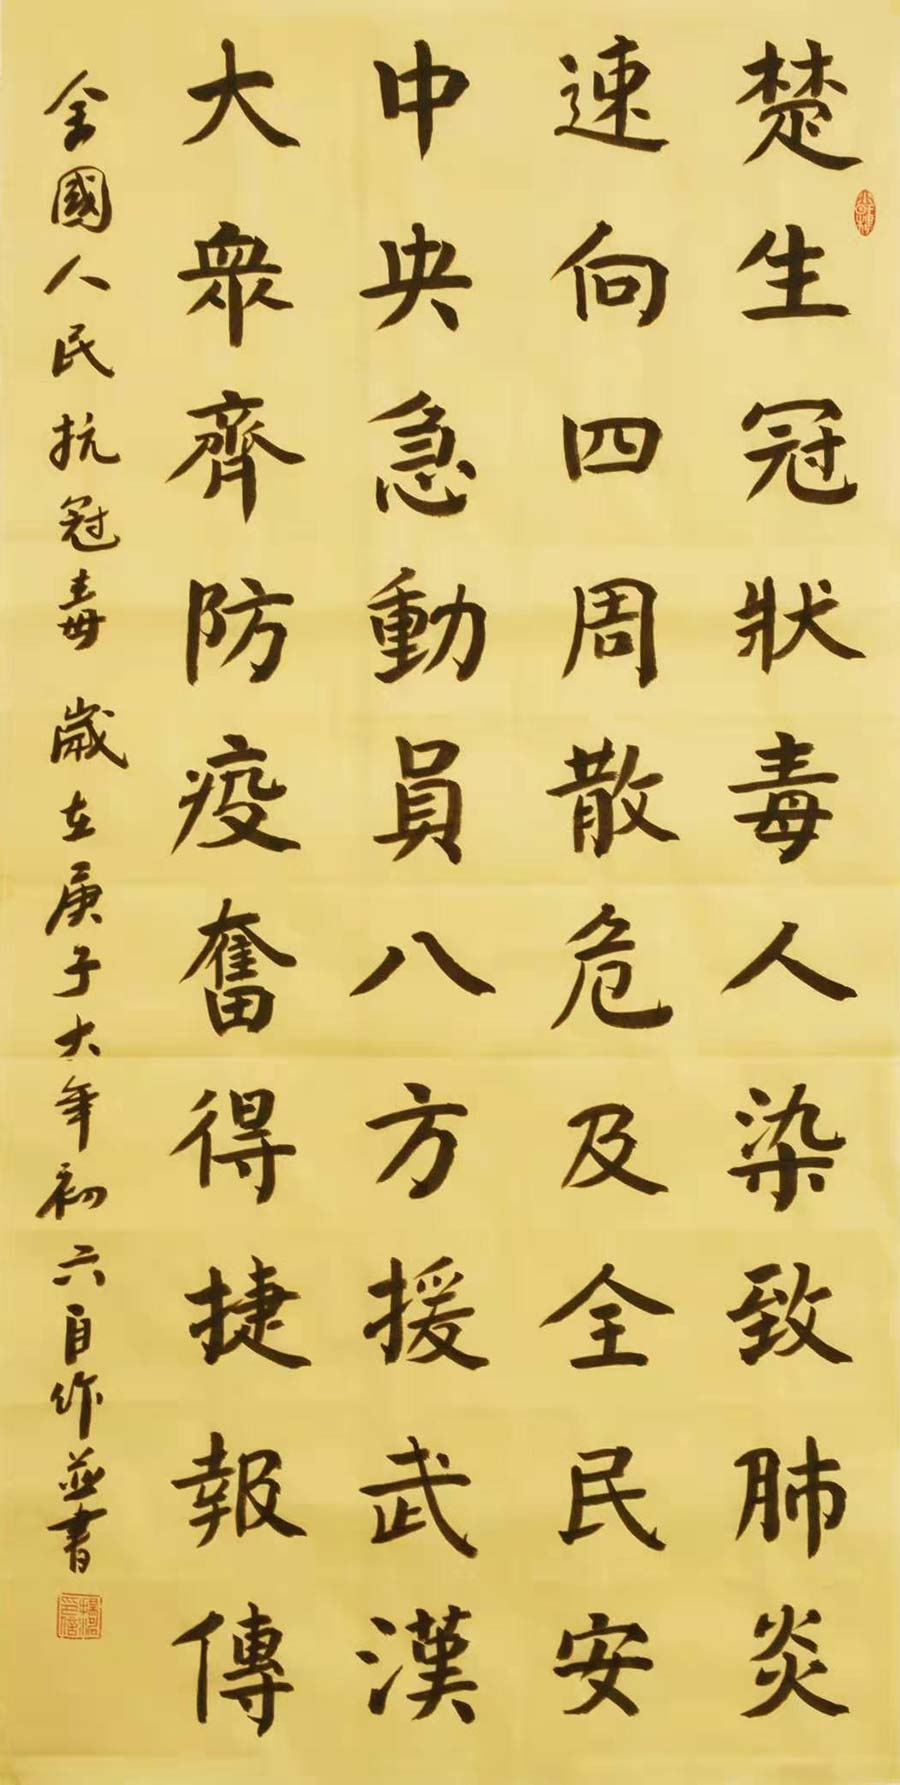 楚生冠狀毒人染致肺炎
速向四周散危及全民安
中央急動員八方援武漢
大衆齊防疫奮得捷報傳
全國人民抗冠毒 歲在庚子大年初六自作並書